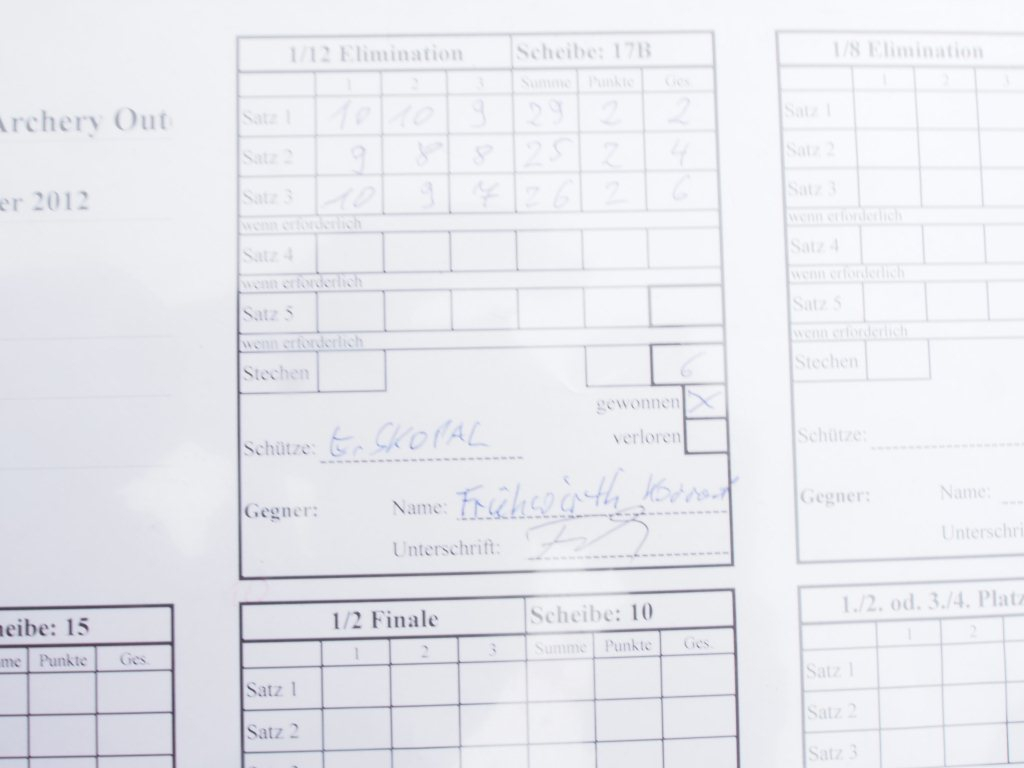 Archery Out
er 2012
1/12 Elimination Scheibe: 17B
1 2 3 Summe Punkte Ges.
Satz 1 10 10 9 29 2 2
Satz 2 9 8 8 25 2 4
Satz 3 10 9 7 26 2 6
wenn erforderlich
Satz 4
wenn erforderlich
Satz 5
wenn erforderlich
Stechen 6
gewonnen X
verloren
Schütze: G. SKOPAL
Gegner: Name: Frühwirth
Unterschrift:
1/8 Elimination
1 2 3
Satz 1
Satz 2
Satz 3
wenn erforderlich
Satz 4
wenn erforderlich
Satz 5
wenn erforderlich
Stechen
Schütze:
Gegner: Name:
Unterschrift
heibe: 15
me Punkte Ges.
1/2 Finale Scheibe: 10
1 2 3 Summe Punkte Ges.
Satz 1
Satz 2
1./2. od. 3./4. Platz
1 2
Satz 1
Satz 2
Satz 3